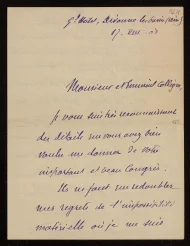 Monsieur et éminent collègue,
Je vous suis très reconnaissant
des détails que vous avez bien
voulu me donner de votre
important et beau Congrès.
Ils ne font que redoubler
mes regrets de l'impossibilité
matérielle où je me suis